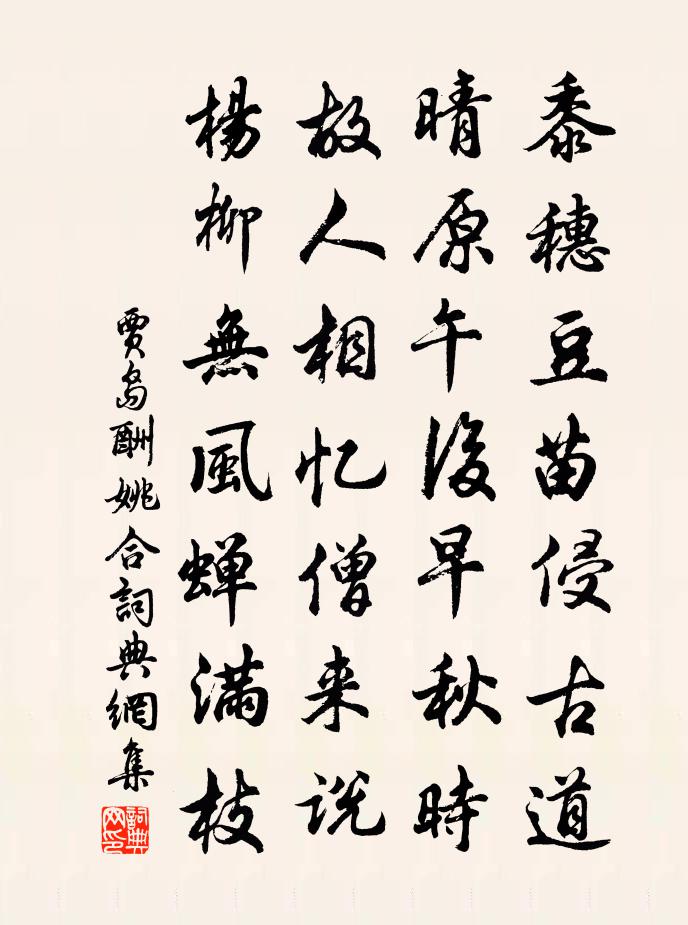 黍穗豆苗侵古道
晴原午後早秋時
故人相忆僧来説
楊柳無風蝉满枝
賈島酬姚合詞典網集
詞典网印